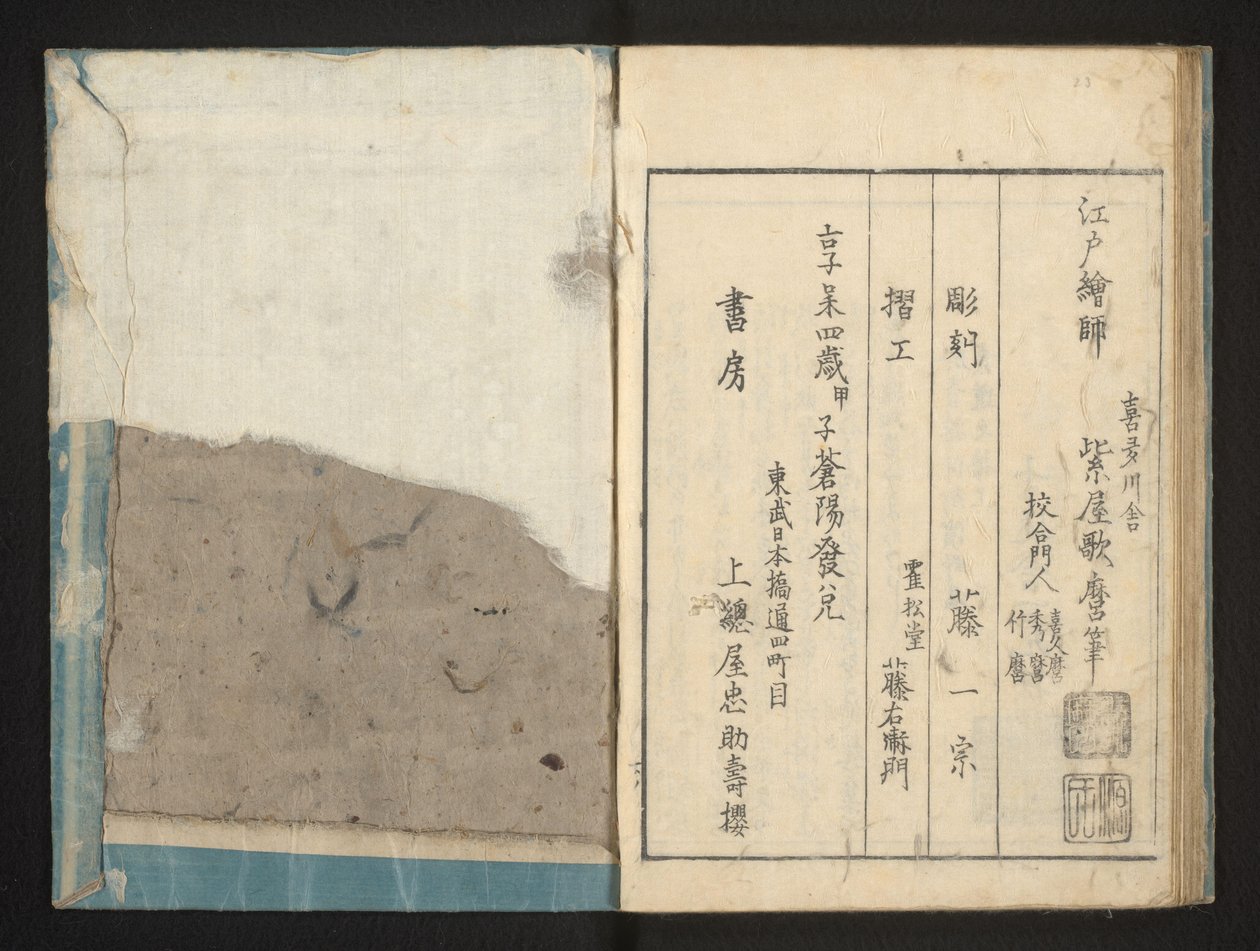 23
江戸繪師
喜多川舎
紫屋歌麿筆
源氏
校合門人
喜久麿
秀麿
竹麿
彫刻 藤一宗
摺工 霍松堂 藤右衛門
享和四歳甲子蒼陽發兌
東武日本橋通四町目
書房 上總屋忠助壽櫻